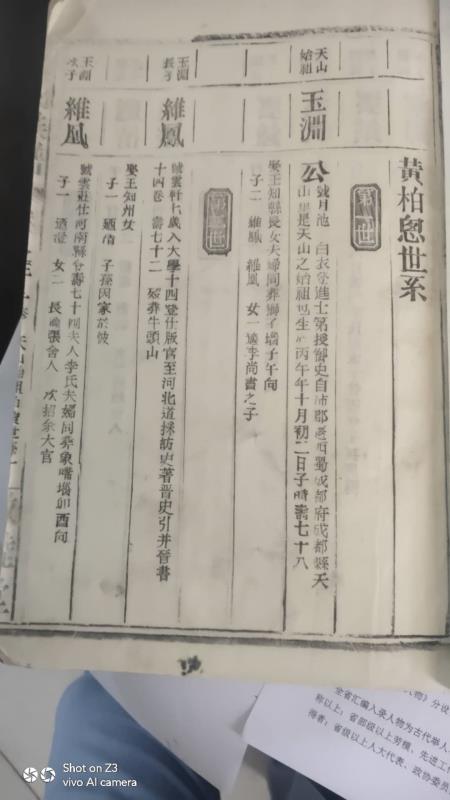 黃柏恩世系
第一世
天山
始祖
玉淵
公號月池 白衣登進士第授御史自沛郡遷西蜀成都府成都縣天
山里是天山之始祖也生於丙午年十月初二日子時壽七十八
娶王知縣長女夫婦同葬獅子壋子午向
子二 維鳳 維鳳 女一適李尚書之子
世
玉淵
長子
維鳳
號雲軒七歲入大學十四登仕版官至河北道採訪史著晉史引并晉書
十四卷 壽七十二 葬牛頭山
娶王知州女
子一 迺清 子孫因家於彼
玉淵
次子
維風
號雲莊仕河南縣令壽七十四夫人李氏夫婦同葬象嘴壋卯酉向
子一 迺澄 女二 長適張舍人 次招余大官
全省汇编入录人物为古代举人
称以上；省部级以上劳模、先进工作
省级以上人大代表、政协委员
Shot on Z3
vivo AI camera